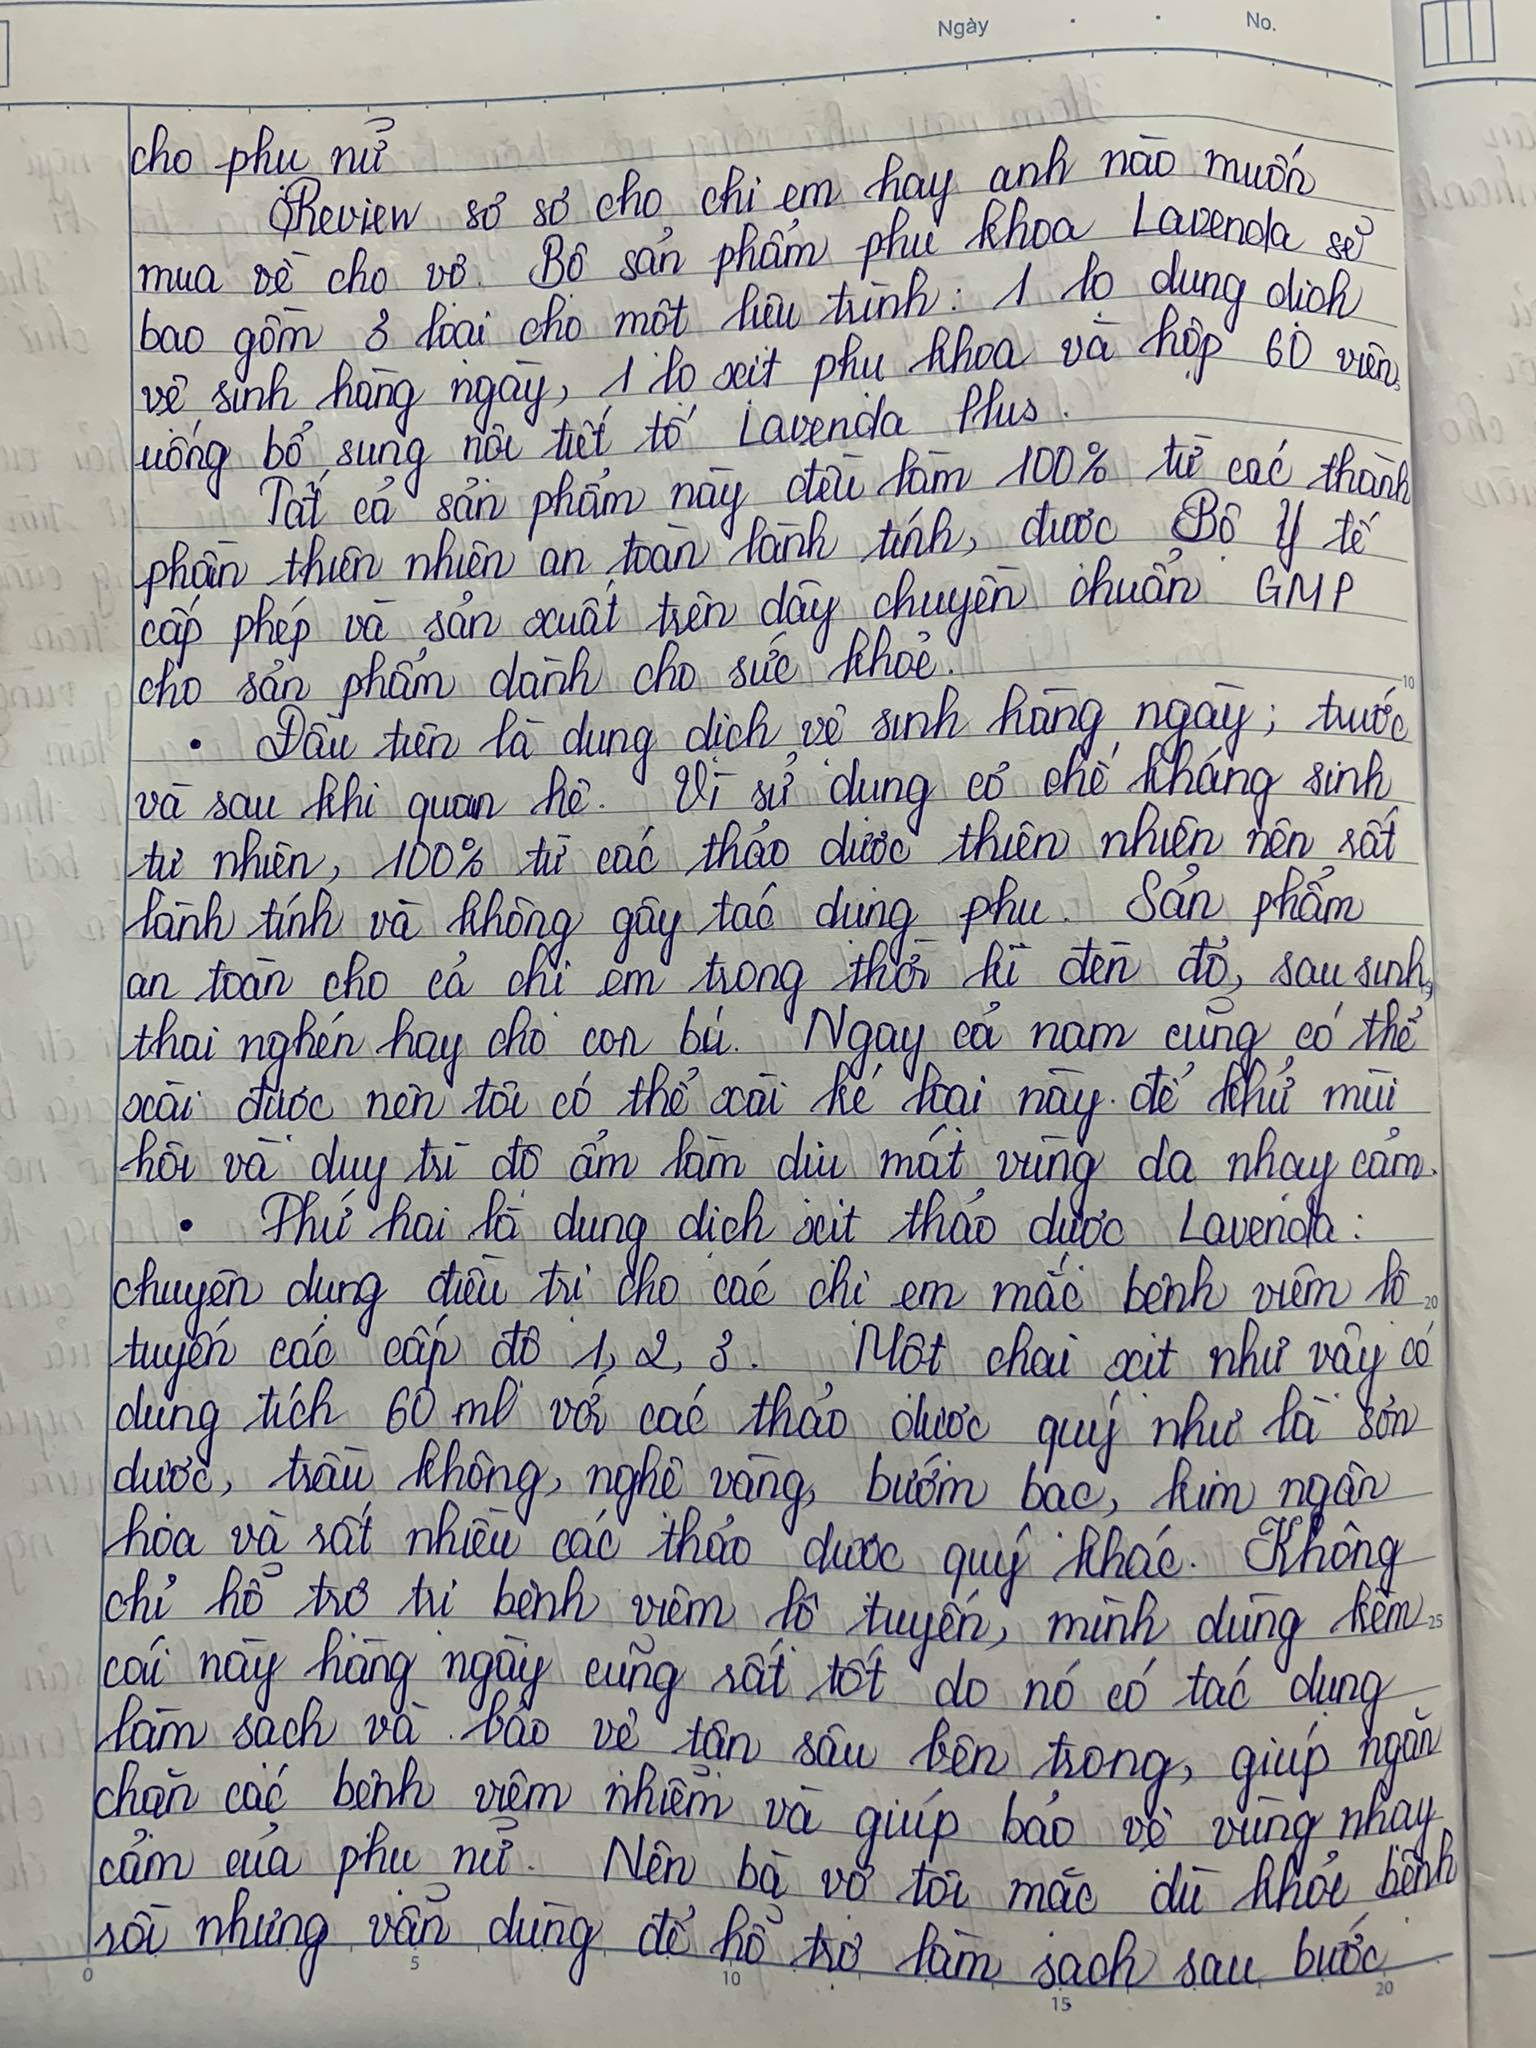 Ngày No.
cho phụ nữ
Review sơ sơ cho chị em hay anh nào muốn
mua về cho vợ. Bộ sản phẩm phụ khoa Lavenda sẽ
bao gồm 3 loại cho một liệu trình: 1 lọ dung dịch
vệ sinh hàng ngày, 1 lọ xịt phụ khoa và hộp 60 viên
uống bổ sung nội tiết tố Lavenda Plus.
Tất cả sản phẩm này đều làm 100% từ các thành
phần thiên nhiên an toàn lành tính, được Bộ Y tế
cấp phép và sản xuất trên dây chuyền chuẩn GMP
cho sản phẩm dành cho sức khỏe.
• Đầu tiên là dung dịch vệ sinh hàng ngày; trước
và sau khi quan hệ. Vì sử dụng cơ chế kháng sinh
tự nhiên, 100% từ các thảo dược thiên nhiên nên rất
lành tính và không gây tác dụng phụ. Sản phẩm
an toàn cho cả chị em trong thời kì đèn đỏ, sau sinh,
thai nghén hay cho con bú. Ngay cả nam cũng có thể
xài được nên tôi có thể xài ké loại này để khử mùi
hôi và duy trì độ ẩm làm dịu mát vùng da nhạy cảm.
• Thứ hai là dung dịch xịt thảo dược Lavenda:
chuyên dụng điều trị cho các chị em mắc bệnh viêm lộ
tuyến các cấp độ 1, 2, 3. Một chai xịt như vậy có
dung tích 60 ml với các thảo dược quý như là sơn
dược, trầu không, nghệ vàng, bướm bạc, kim ngân
hoa và rất nhiều các thảo dược quý khác. Không
chỉ hỗ trợ trị bệnh viêm lộ tuyến, mình dùng kèm
cái này hàng ngày cũng rất tốt do nó có tác dụng
làm sạch và bảo vệ tận sâu bên trong, giúp ngăn
chặn các bệnh viêm nhiễm và giúp bảo vệ vùng nhạy
cảm của phụ nữ. Nên bà vợ tôi mặc dù khỏi bệnh
rồi nhưng vẫn dùng để hỗ trợ làm sạch sau bước
10
20
25
0 5 10 15 20